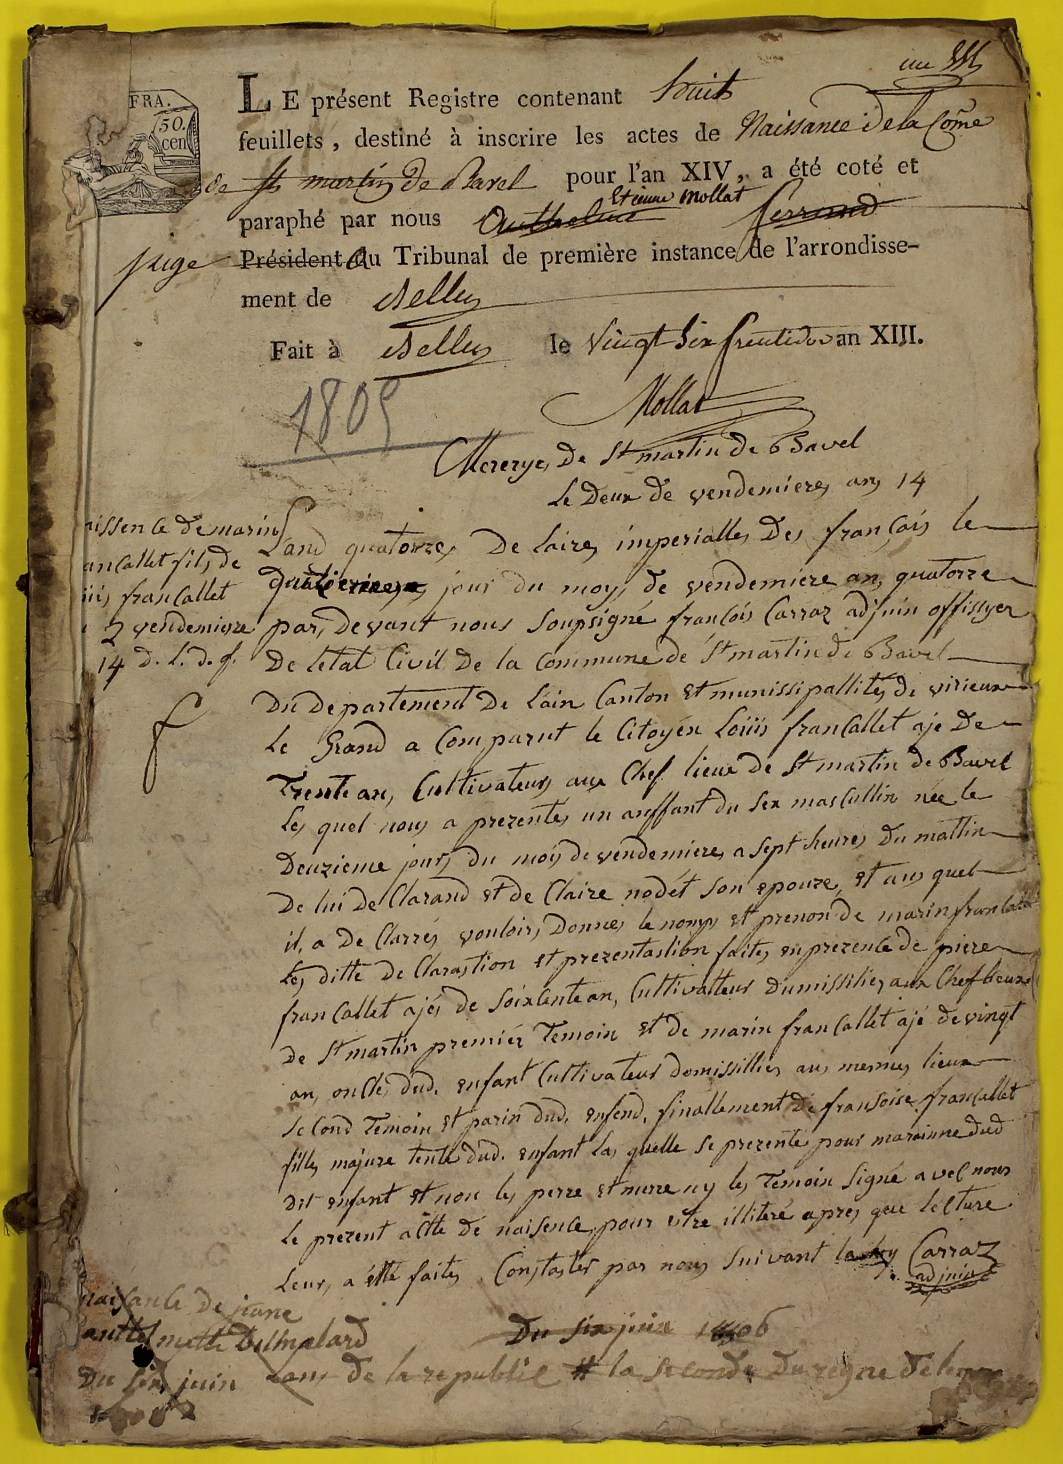 FRA.
50.
cen
LE présent Registre contenant huit
feuillets, destiné à inscrire les actes de Naissance de la Comᵉ
de St martin de Bavel pour l'an XIV, a été coté et
paraphé par nous Etienne Mollat
juge Président du Tribunal de première instance de l'arrondisse-
ment de Belley
Fait à Belley le vingt six fructidor an XIII.
1805
Mollat
Mererye de St martin de Bavel
Le Deux de vendemiere an 14
issence de marin
francallet fils de
francallet
2 vendemiere
14 D. L. D. f.
Land quatorze De Laire imperialle Des français le
jour du moy de vendemiere an quatorze
par devant nous Soupsigné françois Carraz adjuin offissyer
De letat Civil De la Commune de St martin de Bavel
Du Departement De Lain Canton et munissipallité de virieux
Le Grand a Comparut le Citoyen Loüis francallet aje De
Trente an, Cultivateur aux Chef lieux de St martin de Bavel
Les quel nous a prezente un anffant du Sex mascullin née le
Deuzieme jour du mois de vendemiere a sept heures Du mattin
De lui De Clarand et de Claire nodét Son epouze, et au quel
il, a De Clarré vouloir Donner le nomp et prenon de marin francallet
Les ditte De Clarastion et prezentastion faites en prezence de piere
francallet ajés de Soixsente an, Cultivatteur Dumissilie aux Chef lieux
de St martin premiér Temoin et de marin francallet ajé de vingt
an, oncle dud. enfant Cultivateur domissillie au memes lieux
Second Temoin et parin dud. enfend, finallement De fransoise francallet
fille majure tente dud. enfant La quelle se prezente pour marainne dud
Dit enfant et non les perre et mere ny les Temoin Signé avec nous
Le prezent acte de naisence pour etre illiteré apres que lecture
Leur, a étté faites Constater par nous Suivant la loy Carraz
adjuin
naisance de jeane
du six juin
Du six juin 1806
Lans de la republic la seconde du regne de